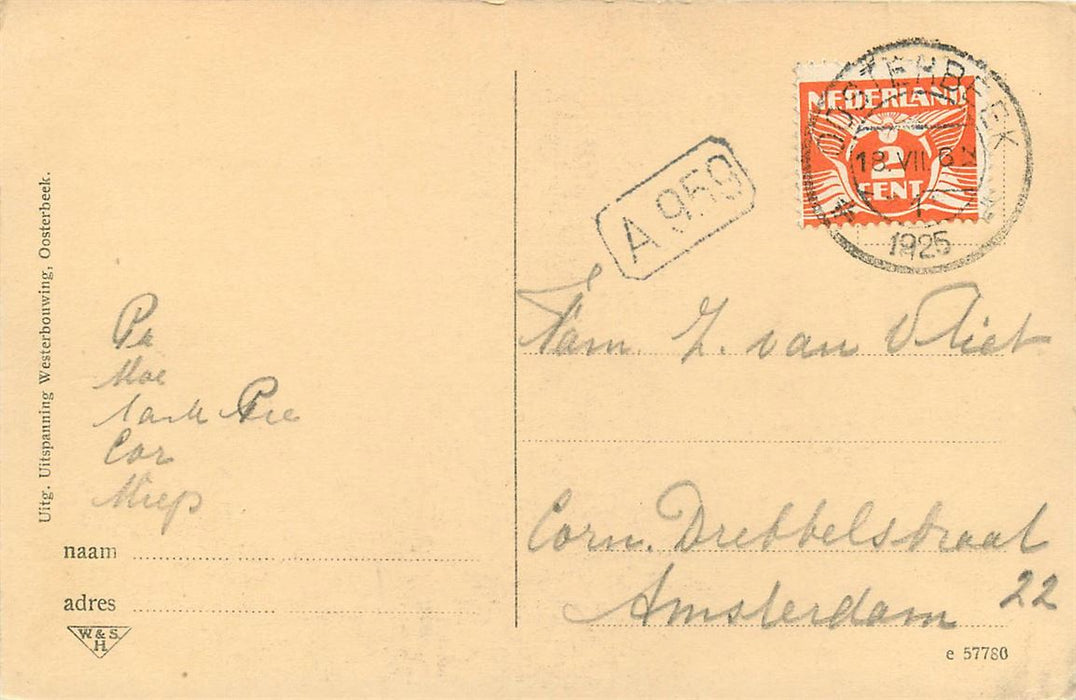 Uitg. Uitspanning Westerbouwing, Oosterbeek.
Pa
Moe
Pie
Cor
Miep
naam
adres
W. & S.
H
A 959
NEDERLAND
2
CENT
OOSTERBEEK
18 VII. 6
1925
Fam. Z. van Vliet
Corn. Drebbelstraat
22
Amsterdam
e 57780